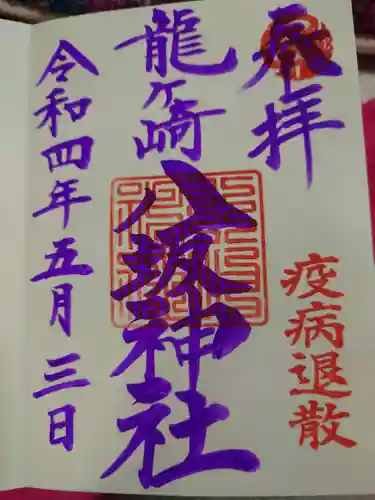 奉拝
疫病退散
龍ケ崎
八坂神社
令和四年五月三日